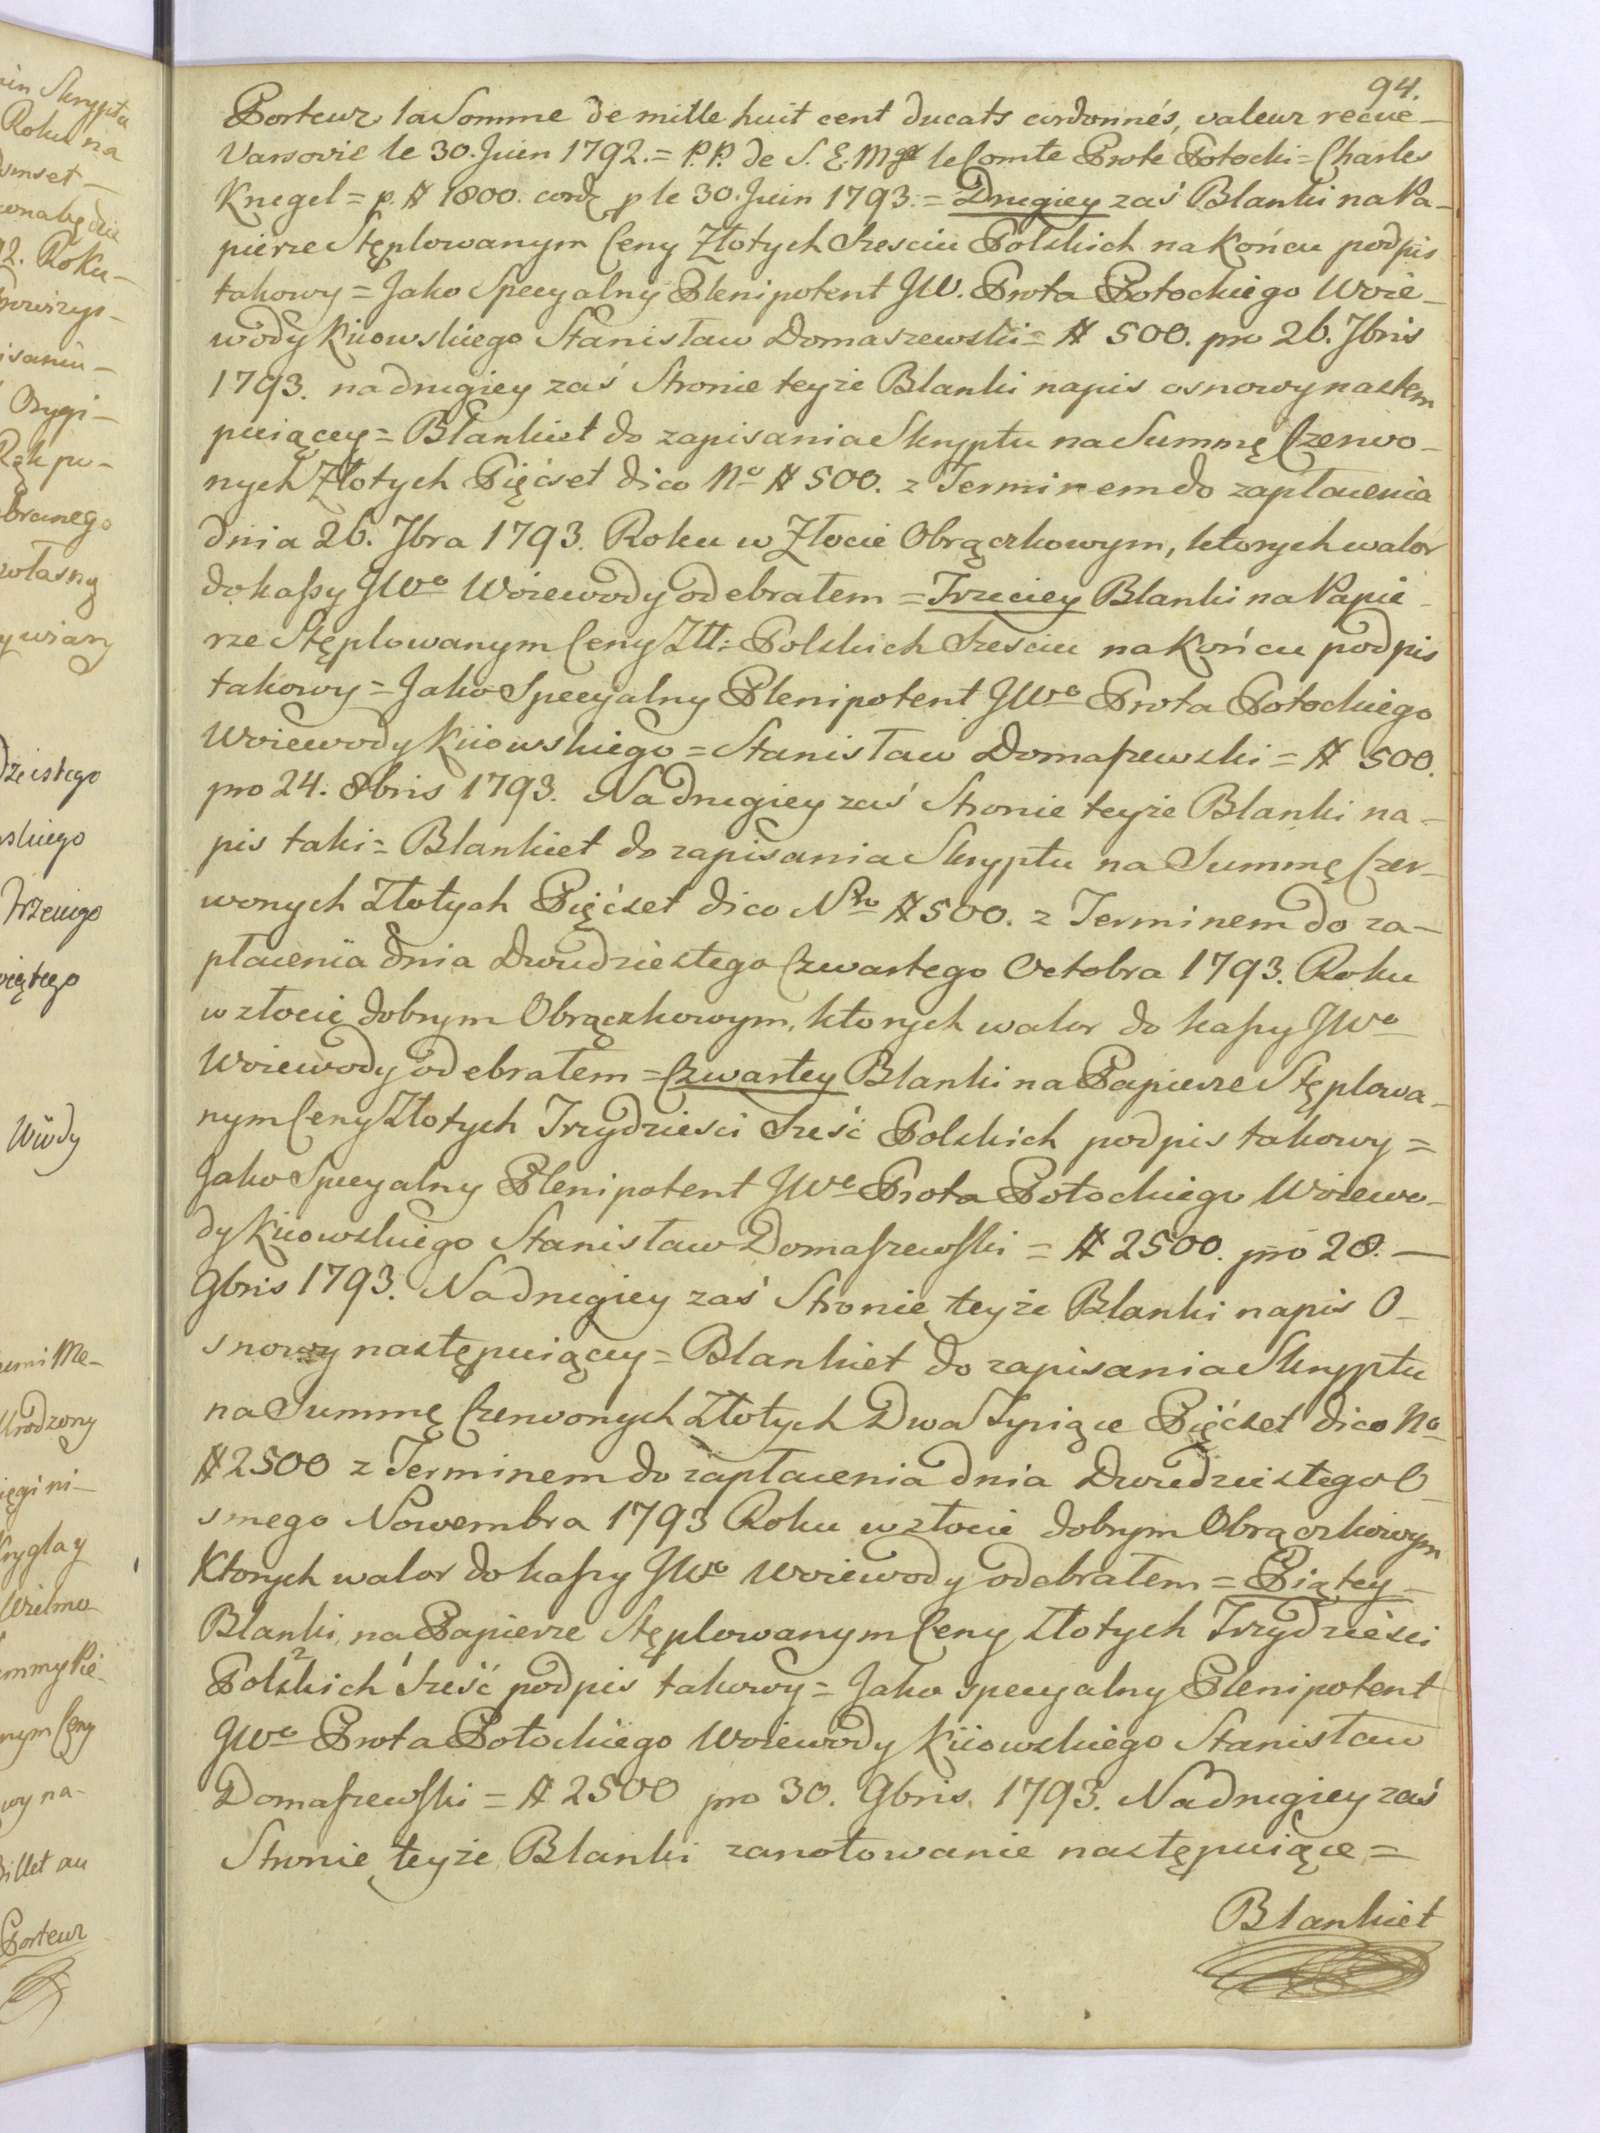 94.
Porteur, la Somme de mille huit cent ducats cordonnés, valeur recüe –
Varsovie le 30. Juin 1792. = P.P. de S. E. Mgr le Comte Prote Potocki = Charles
Knegel = p. # 1800. cord. p le 30. Juin 1793. = Drugiey zaś Blanki na Pa–
pierze Stęplowanym Ceny Złotych Szesciu Polskich na Końcu podpis
takowy = Jako Specyalny Plenipotent JW. Prota Potockiego Woie–
wody Kiiowskiego Stanisław Domaszewski = # 500. pro 26. 7bris
1793. na drugiey zaś Stronie teyże Blanki napis osnowy nastem
puiącey = Blankiet do zapisania Skryptu na Summę Czerwo–
nych Złotych Pięćset dico No # 500. z Terminem do zapłacenia
dnia 26. 7bra 1793. Roku w Złocie Obrączkowym, ktorych walor
do kassy JWo Woiewody odebrałem = Trzeciey Blanki na Papie–
rze Stęplowanym Ceny Złł: Polskich Szesciu na Końcu podpis
takowy = Jako Specyalny Plenipotent JWo Prota Potockiego
Woiewody Kiiowskiego = Stanisław Domaszewski = # 500.
pro 24. 8bris 1793. Na drugiey zaś Stronie teyże Blanki na–
pis taki = Blankiet do zapisania Skryptu na Summę Czer–
wonych Złotych Pięćset dico Nro # 500. z Terminem do za–
płacenia dnia Dwudziestego Czwartego Octobra 1793. Roku
w złocie dobrym Obrączkowym, ktorych walor do kassy JWo
Woiewody odebrałem = Czwartey Blanki na Papierze Stęplowa–
nym Ceny Złotych Trzydziesci Sześć Polskich podpis takowy =
Jako Specyalny Plenipotent JWo Prota Potockiego Woiewo–
dy Kiiowskiego Stanisław Domaszewski = # 2500. pro 28. —
9bris 1793. Na drugiey zaś Stronie teyże Blanki napis O–
snowy następuiącey = Blankiet do zapisania Skryptu
na Summę Czerwonych Złotych Dwa Tysiące Pięćset dico No
# 2500 z Terminem do zapłacenia dnia Dwudziestego O–
smego Nowembra 1793 Roku w złocie dobrym Obrączkowym
Ktorych walor do kassy JWo Woiewody odebrałem = Piątey –
Blanki na Papierze Stęplowanym Ceny Złotych Trzydziesci
Polskich 2 Sześć 1 podpis takowy = Jako specyalny Plenipotent
JWo Prota Potockiego Woiewody Kiiowskiego Stanisław
Domaszewski = # 2500 pro 30. 9bris. 1793. Na drugiey zaś
Stronie teyże Blanki zanotowanie następuiące =
Blankiet